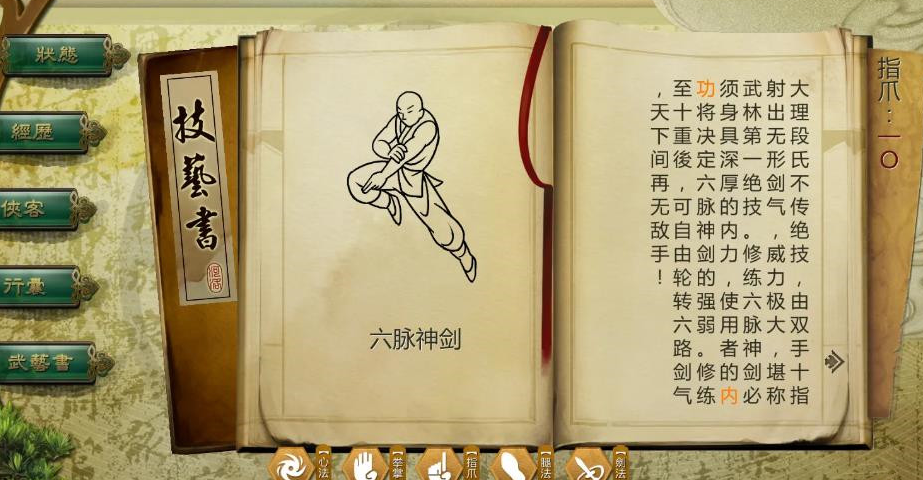 狀態
經歷
俠客
行囊
武藝書
技藝書
六脉神剑
指爪：一〇
大理段氏不传绝技，由双手十指
射出无形剑气，威力极大，堪称
武林第一绝技。修练六脉神剑必
须身具深厚的内力，使用者的内
功将决定六脉神剑的强弱。修练
至十重後，可自由轮转六路剑气
，天下间再无敌手！
【心法
【拳掌
【指爪
【腿法
【劍法